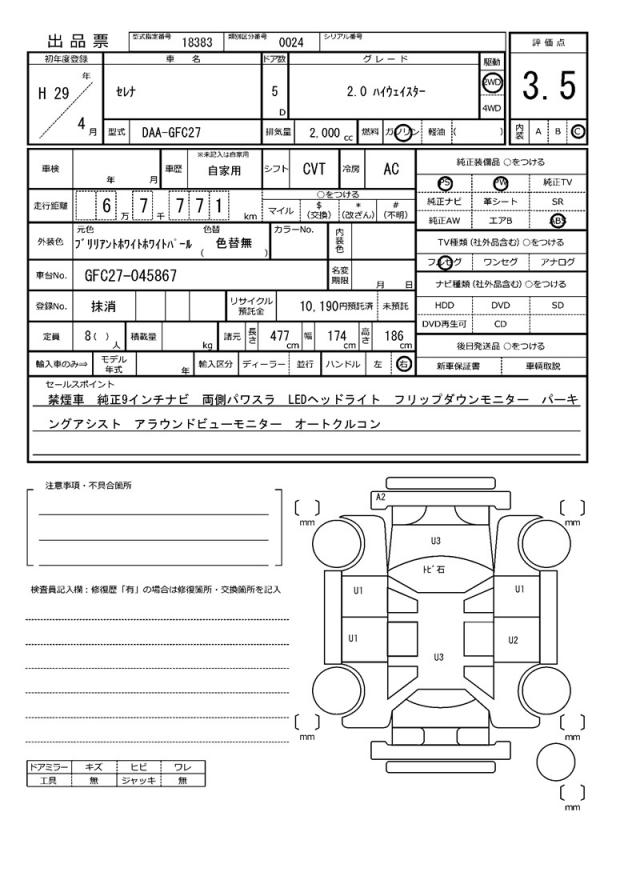 出品票 型式指定番号 18383 類別区分番号 0024 シリアル番号
初年度登録 車名 ドア数 グレード 駆動 評価点
H 29 年 4 月 セレナ 5 D 2.0 ハイウェイスター 2WD 4WD 3.5
型式 DAA-GFC27 排気量 2,000 cc 燃料 ガソリン 軽油 ( ) 内装 A B C
車検 年 月 車歴 ※未記入は自家用 自家用 シフト CVT 冷房 AC 純正装備品 ○をつける
PS PW 純正TV
走行距離 6 万 7 千 7 7 1 km ○をつける 純正ナビ 革シート SR
マイル $ (交換) * (改ざん) # (不明) 純正AW エアB ABS
外装色 元色 ブリリアントホワイトホワイトパール 色替 色替無 ( ) カラーNo. 内装色 TV種類 (社外品含む) ○をつける
フルセグ ワンセグ アナログ
車台No. GFC27-045867 名変期限 月 日 ナビ種類 (社外品含む) ○をつける
登録No. 抹消 リサイクル預託金 10,190円預託済 未預託 HDD DVD SD
DVD再生可 CD
定員 8( ) 人 積載量 kg 諸元 長さ 477 cm 幅 174 cm 高さ 186 cm 後日発送品 ○をつける
輸入車のみ⇒ モデル年式 年 輸入区分 ディーラー 並行 ハンドル 左 右 新車保証書 車輌取説
セールスポイント
禁煙車 純正9インチナビ 両側パワスラ LEDヘッドライト フリップダウンモニター パーキ
ングアシスト アラウンドビューモニター オートクルコン
注意事項・不具合箇所
検査員記入欄：修復歴「有」の場合は修復箇所・交換箇所を記入
ドアミラー キズ ヒビ ワレ
工具 無 ジャッキ 無
A2
mm mm
U3
トビ石
U1 U1
U1 U2
U3
mm mm
mm